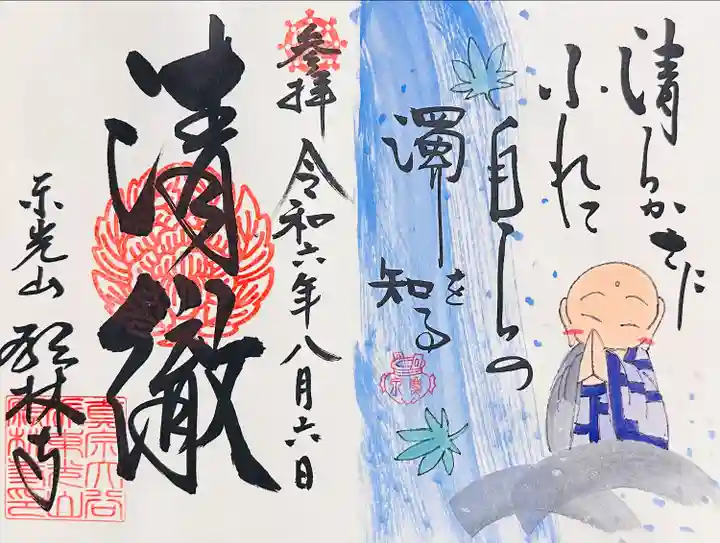 清らかさに
ふれて
自らの
濁り
を
知る
参拝 令和六年八月六日
清徹
東光山
林寺
真宗大谷